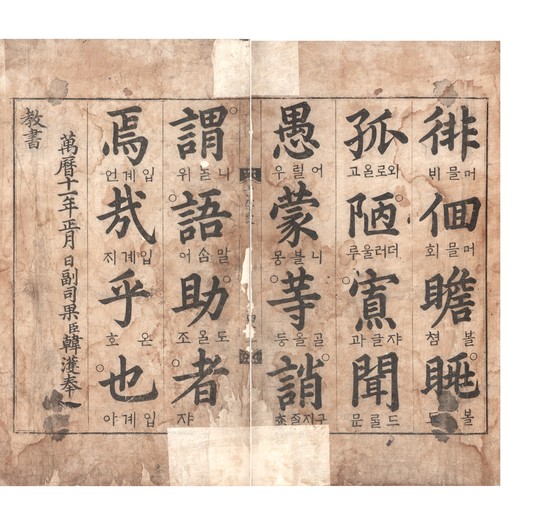 徘 머믈 비 佪 머믈 회 瞻 볼 쳠 眺 볼 됴
孤 외로올 고 陋 더러울 루 寡 쟈글 과 聞 드를 문
愚 어릴 우 蒙 니블 몽 等 골올 등 誚 구지즐 쵸
謂 니 위 語 말솜 어 助 도올 조 者 쟈
焉 입계 언 哉 입계 ᄌᆡ 乎 온 호 也 입계 야
萬曆十一年正月 日副司果臣韓濩奉
敎書